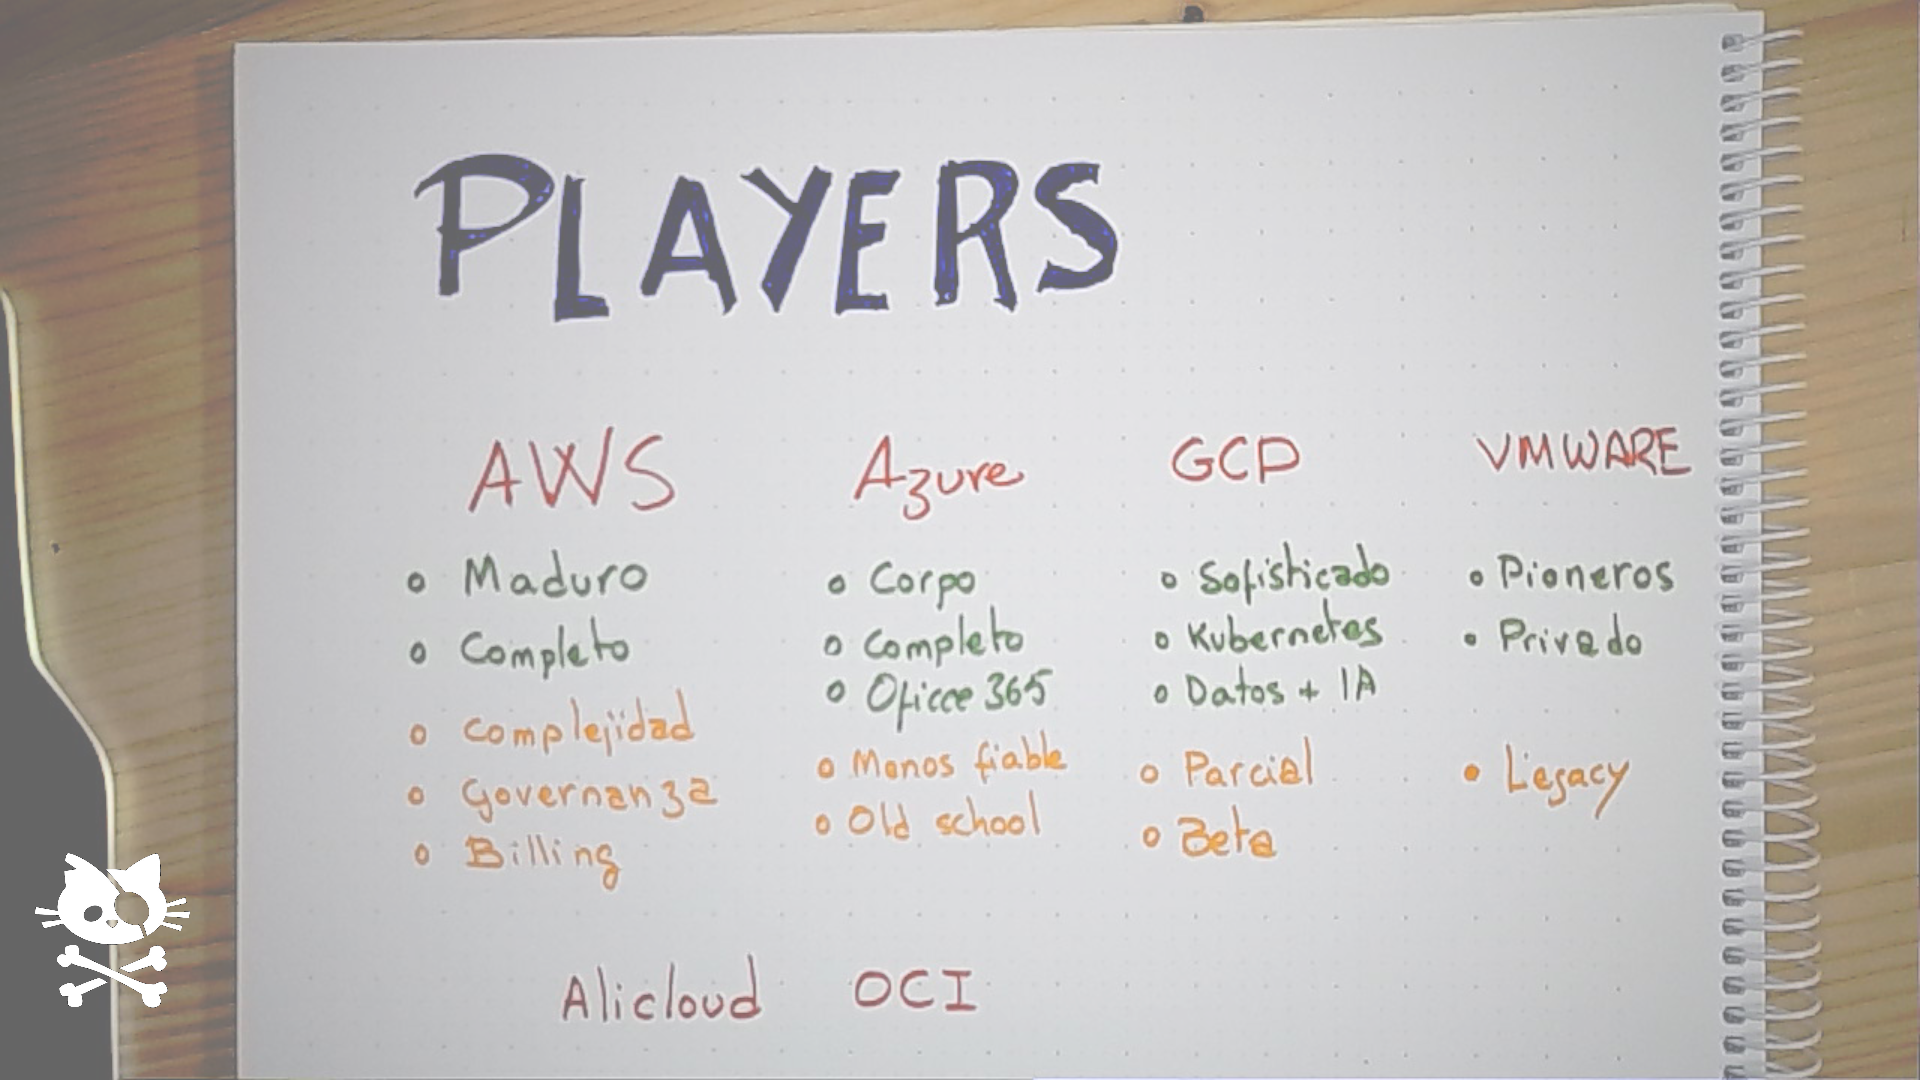 PLAYERS
AWS
• Maduro
• Completo
• Complejidad
• Governanza
• Billing
Azure
• Corpo
• Completo
• Oficce 365
• Menos fiable
• Old school
GCP
• Sofisticado
• Kubernetes
• Datos + IA
• Parcial
• Beta
VMWARE
• Pioneros
• Privado
• Legacy
Alicloud
OCI